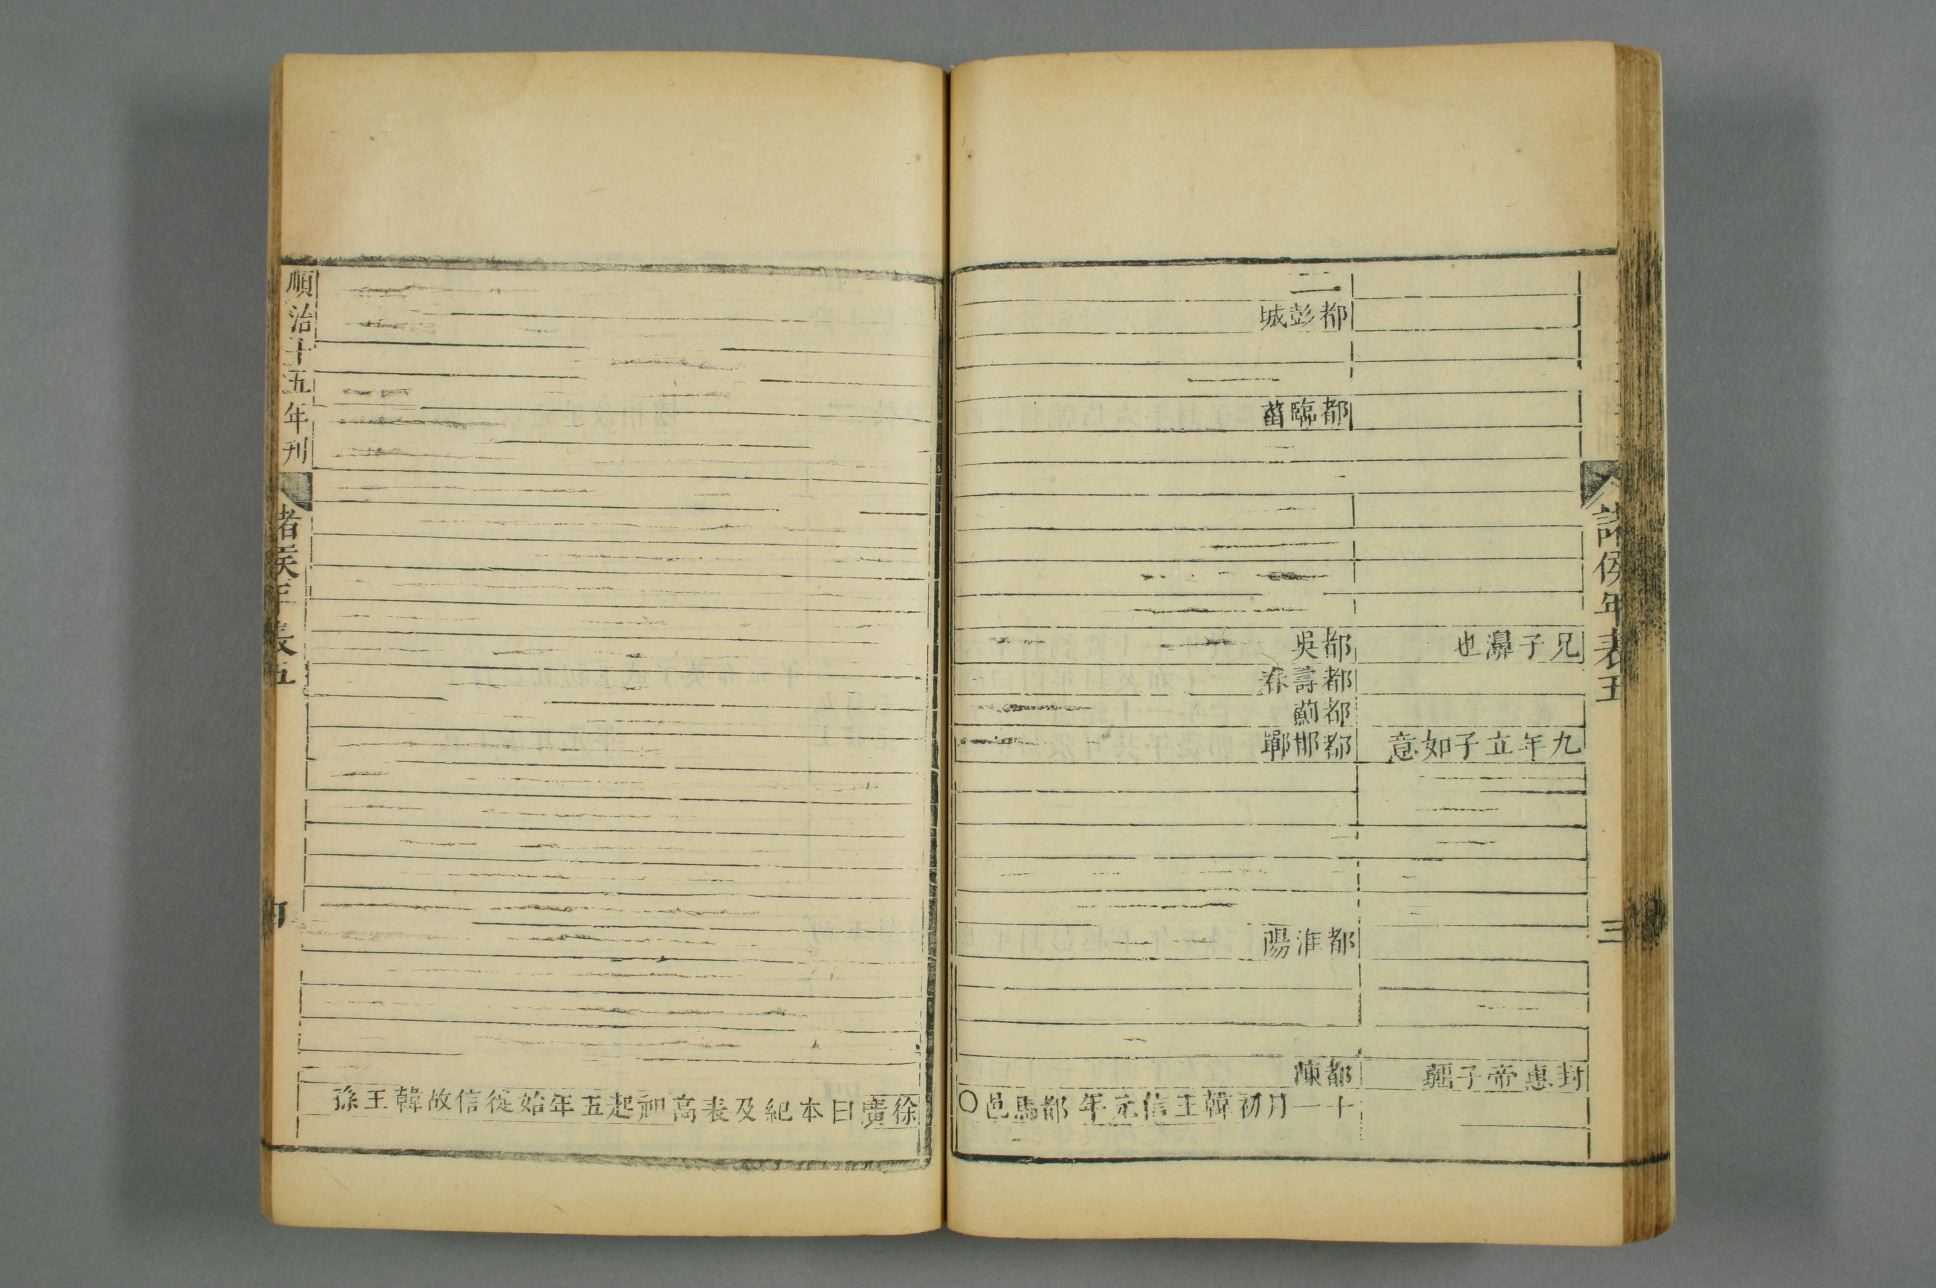 諸侯年表五
三
兄子濞也
九年立子如意
封惠帝子彊
二
都彭城
都臨菑
都吳
都壽春
都薊
都邯鄲
都淮陽
都陳
十一月初韓王信元年都馬邑〇
徐廣曰本紀及表高祖起五年始徙信故韓王孫
順治十五年刊
諸侯年表五